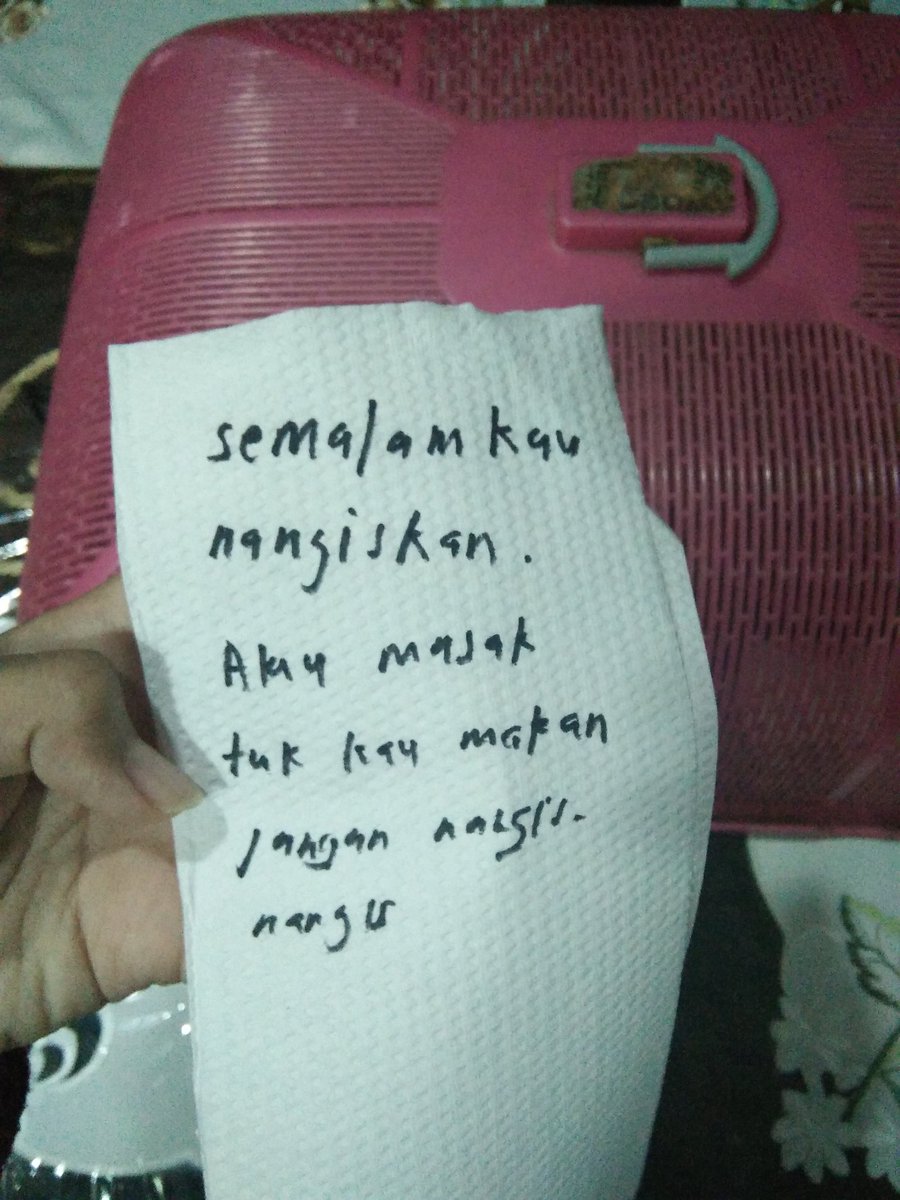 semalam kau
nangiskan.
Aku masak
tuk kau makan
jangan nangis.
nangis